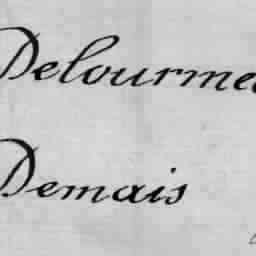 Delourme
Demais